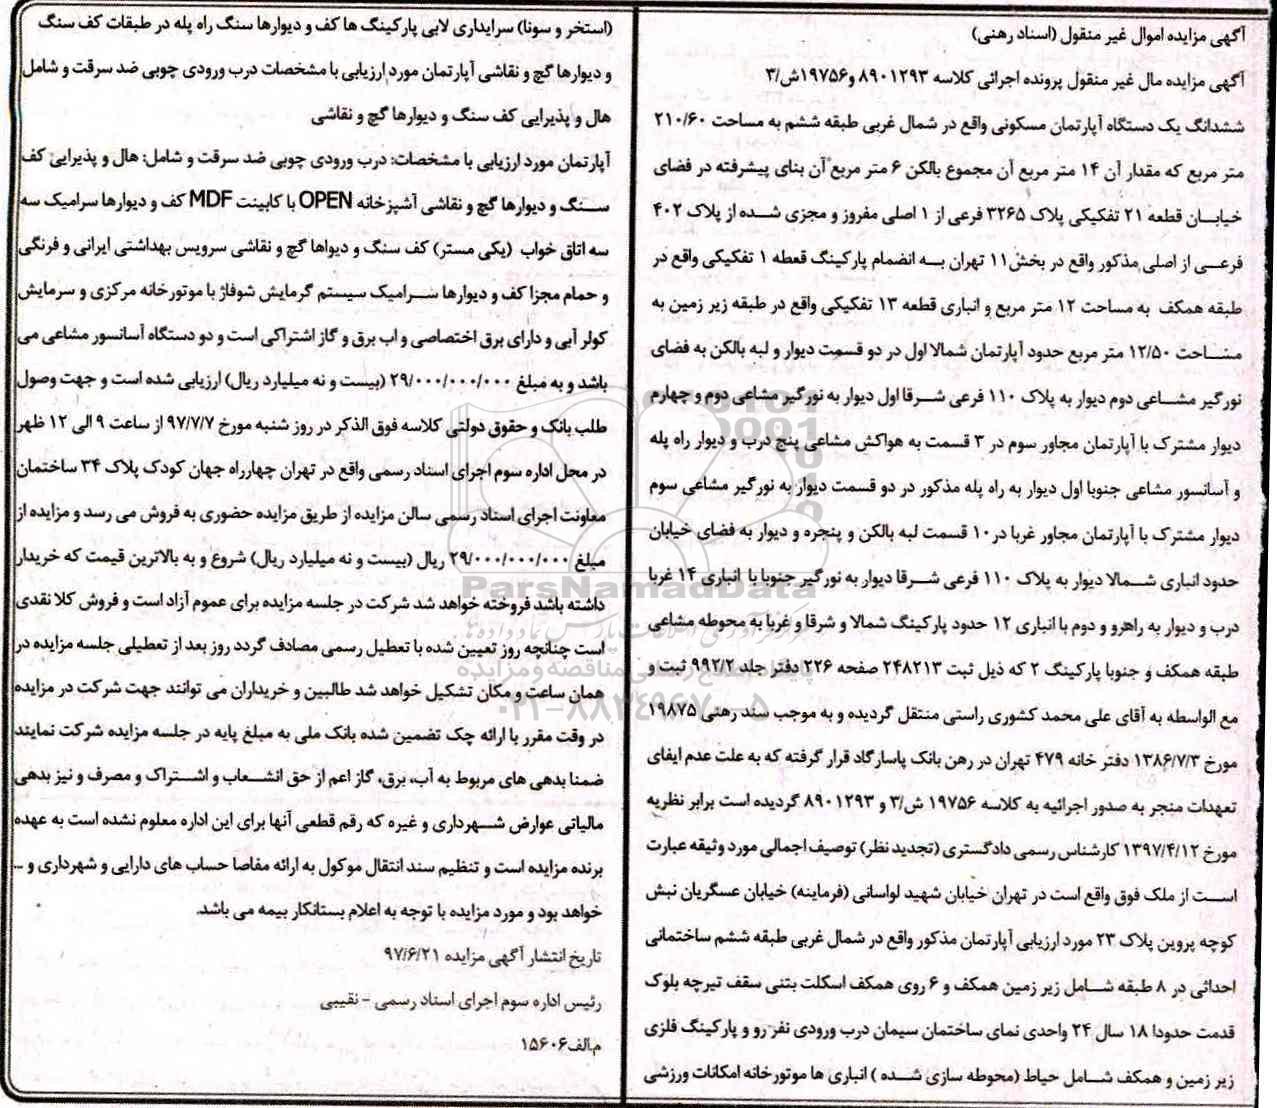 آگهی مزایده اموال غیر منقول (اسناد رهنی)
آگهی مزایده مال غیر منقول پرونده اجرائی کلاسه ۸۹۰۱۲۹۳ و۱۹۷۵۶ش/۳
ششدانگ یک دستگاه آپارتمان مسکونی واقع در شمال غربی طبقه ششم به مساحت ۲۱۰/۶۰
متر مربع که مقدار آن ۱۴ متر مربع آن مجموع بالکن ۶ متر مربع آن بنای پیشرفته در فضای
خیابان قطعه ۲۱ تفکیکی پلاک ۳۲۶۵ فرعی از ۱ اصلی مفروز و مجزی شده از پلاک ۴۰۲
فرعی از اصلی مذکور واقع در بخش ۱۱ تهران به انضمام پارکینگ قعطه ۱ تفکیکی واقع در
طبقه همکف به مساحت ۱۲ متر مربع و انباری قطعه ۱۳ تفکیکی واقع در طبقه زیر زمین به
مساحت ۱۲/۵۰ متر مربع حدود آپارتمان شمالا اول در دو قسمت دیوار و لبه بالکن به فضای
نورگیر مشاعی دوم دیوار به پلاک ۱۱۰ فرعی شرقا اول دیوار به نورگیر مشاعی دوم و چهارم
دیوار مشترک با آپارتمان مجاور سوم در ۳ قسمت به هواکش مشاعی پنج درب و دیوار راه پله
و آسانسور مشاعی جنوبا اول دیوار به راه پله مذکور در دو قسمت دیوار به نورگیر مشاعی سوم
دیوار مشترک با آپارتمان مجاور غربا در۱۰ قسمت لبه بالکن و پنجره و دیوار به فضای خیابان
حدود انباری شمالا دیوار به پلاک ۱۱۰ فرعی شرقا دیوار به نورگیر جنوبا با انباری ۱۴ غربا
درب و دیوار به راهرو و دوم با انباری ۱۲ حدود پارکینگ شمالا و شرقا و غربا به محوطه مشاعی
طبقه همکف و جنوبا پارکینگ ۲ که ذیل ثبت ۲۴۸۲۱۳ صفحه ۲۲۶ دفتر جلد ۹۹۲/۲ ثبت و
مع الواسطه به آقای علی محمد کشوری راستی منتقل گردیده و به موجب سند رهنی ۱۹۸۷۵
مورخ ۱۳۸۶/۷/۳ دفتر خانه ۴۷۹ تهران در رهن بانک پاسارگاد قرار گرفته که به علت عدم ایفای
تعهدات منجر به صدور اجرائیه به کلاسه ۱۹۷۵۶ ش/۳ و ۸۹۰۱۲۹۳ گردیده است برابر نظریه
مورخ ۱۳۹۷/۴/۱۲ کارشناس رسمی دادگستری (تجدید نظر) توصیف اجمالی مورد وثیقه عبارت
است از ملک فوق واقع است در تهران خیابان شهید لواسانی (فرمانیه) خیابان عسگریان نبش
کوچه پروین پلاک ۲۳ مورد ارزیابی آپارتمان مذکور واقع در شمال غربی طبقه ششم ساختمانی
احداثی در ۸ طبقه شامل زیر زمین همکف و ۶ روی همکف اسکلت بتنی سقف تیرچه بلوک
قدمت حدودا ۱۸ سال ۲۴ واحدی نمای ساختمان سیمان درب ورودی نفر رو و پارکینگ فلزی
زیر زمین و همکف شامل حیاط (محوطه سازی شده ) انباری ها موتورخانه امکانات ورزشی
(استخر و سونا) سرایداری لابی پارکینگ ها کف و دیوارها سنگ راه پله در طبقات کف سنگ
و دیوارها گچ و نقاشی آپارتمان مورد ارزیابی با مشخصات درب ورودی چوبی ضد سرقت و شامل
هال و پذیرایی کف سنگ و دیوارها گچ و نقاشی
آپارتمان مورد ارزیابی با مشخصات: درب ورودی چوبی ضد سرقت و شامل: هال و پذیرایی کف
سنگ و دیوارها گچ و نقاشی آشپزخانه OPEN با کابینت MDF کف و دیوارها سرامیک سه
سه اتاق خواب (یکی مستر) کف سنگ و دیواها گچ و نقاشی سرویس بهداشتی ایرانی و فرنگی
و حمام مجزا کف و دیوارها سرامیک سیستم گرمایش شوفاژ با موتورخانه مرکزی و سرمایش
کولر آبی و دارای برق اختصاصی و اب برق و گاز اشتراکی است و دو دستگاه آسانسور مشاعی می
باشد و به مبلغ ۲۹/۰۰۰/۰۰۰/۰۰۰ (بیست و نه میلیارد ریال) ارزیابی شده است و جهت وصول
طلب بانک و حقوق دولتی کلاسه فوق الذکر در روز شنبه مورخ ۹۷/۷/۷ از ساعت ۹ الی ۱۲ ظهر
در محل اداره سوم اجرای اسناد رسمی واقع در تهران چهارراه جهان کودک پلاک ۳۴ ساختمان
معاونت اجرای اسناد رسمی سالن مزایده از طریق مزایده حضوری به فروش می رسد و مزایده از
مبلغ ۲۹/۰۰۰/۰۰۰/۰۰۰ ریال (بیست و نه میلیارد ریال) شروع و به بالاترین قیمت که خریدار
داشته باشد فروخته خواهد شد شرکت در جلسه مزایده برای عموم آزاد است و فروش کلا نقدی
است چنانچه روز تعیین شده با تعطیل رسمی مصادف گردد روز بعد از تعطیلی جلسه مزایده در
همان ساعت و مکان تشکیل خواهد شد طالبین و خریداران می توانند جهت شرکت در مزایده
در وقت مقرر با ارائه چک تضمین شده بانک ملی به مبلغ پایه در جلسه مزایده شرکت نمایند
ضمنا بدهی های مربوط به آب، برق، گاز اعم از حق انشعاب و اشتراک و مصرف و نیز بدهی
مالیاتی عوارض شهرداری و غیره که رقم قطعی آنها برای این اداره معلوم نشده است به عهده
برنده مزایده است و تنظیم سند انتقال موکول به ارائه مفاصا حساب های دارایی و شهرداری و ...
خواهد بود و مورد مزایده با توجه به اعلام بستانکار بیمه می باشد.
تاریخ انتشار آگهی مزایده ۹۷/۶/۲۱
رئیس اداره سوم اجرای اسناد رسمی - نقیبی
م.الف۱۵۶۰۶
ParsNamadData
پایگاه اطلاع رسانی مناقصه و مزایده
۰۲۱-۸۸۳۴۹۶۷۰-۵